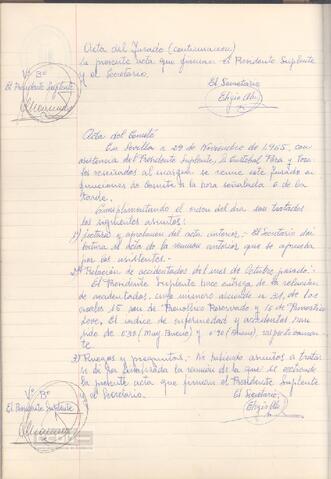 Acta del Jurado (continuación)
la presente acta que firman el Presidente Suplente
y el Secretario.
Vº Bº
El Presidente Suplente
El Secretario
Acta del Comité
En Sevilla a 29 de Noviembre de 1.965, con
asistencia del Presidente Suplente, D. Cristobal Vera y voca
les reseñados al margen se reune este Jurado en
funciones de Comité a la hora señalada 6 de la
tarde.
Cumplimentando el orden del día son tratados
los siguientes asuntos:
1º) Lectura y aprobación del acta anterior.- El Secretario da
lectura al acta de la reunión anterior que es aprobada
por los asistentes.-
2º) Relación de accidentados del mes de Octubre pasado.-
El Presidente Suplente hace entrega de la relación
de accidentados, cuyo número asciende a 31, de los
cuales 15 son de Pronóstico Reservado y 16 de Pronóstico
Leve. El indice de enfermedad y accidentes han
sido de 0'30 (Muy Bueno) y 0'90 (Bueno), respectivamen
te.
3º) Ruegos y preguntas.- No habiendo asuntos a tratar
se da por finalizada la reunión de la que se extiende
la presente acta que firman el Presidente Suplente
y el Secretario.
Vº Bº
El Presidente Suplente
El Secretario